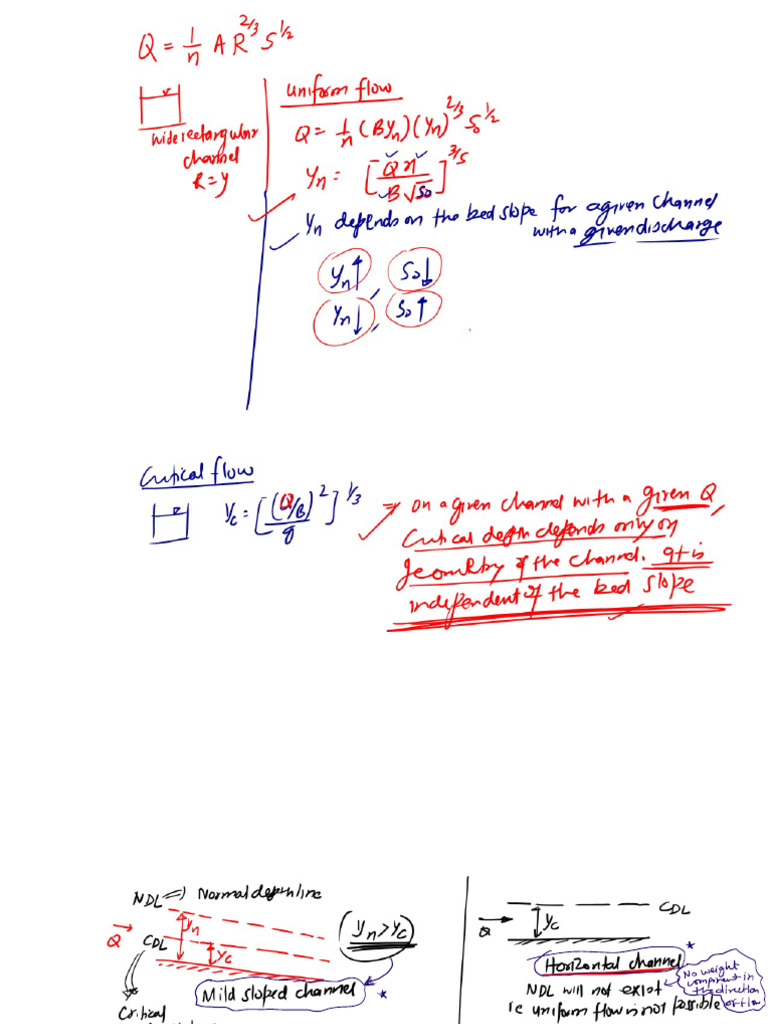 Q = 1/n A R^2/3 S^1/2
wide rectangular
channel
R = y
Uniform flow
Q = 1/n (By_n) (y_n)^2/3 S_0^1/2
y_n = [Q n / B√S_0]^3/5
y_n depends on the bed slope for a given channel
with a given discharge
y_n ↑, S_0 ↓
y_n ↓, S_0 ↑
Critical flow
y_c = [(Q/B)^2 / g]^1/3
⇒ on a given channel with a given Q,
Critical depth depends only on
geometry of the channel. It is
independent of the bed slope
NDL ⇒ Normal depth line
Q
CDL
y_n
y_c
(y_n > y_c)
Mild sloped channel *
Critical
CDL
Q
y_c
Horizontal channel *
NDL will not exist
i.e uniform flow is not possible
No weight
component in
the direction
of flow